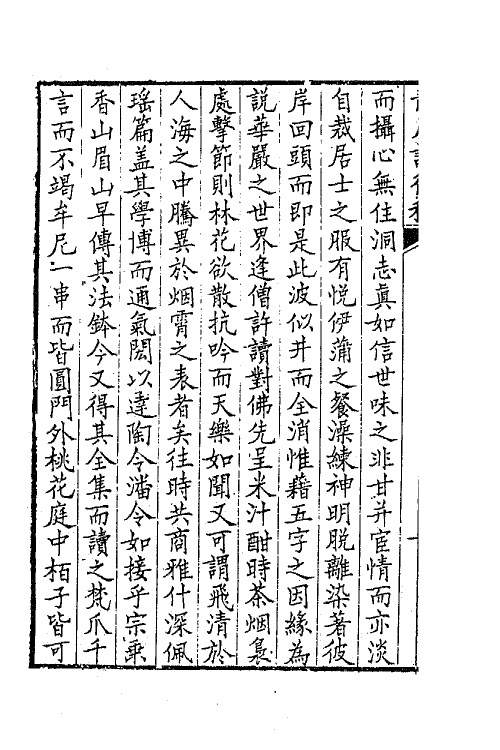 而攝心無住洞志真如信世味之非甘并宦情而亦淡
自裁居士之服有悅伊蒲之餐澡練神明脱離染著彼
岸回頭而即是此波似井而全消惟藉五字之因緣為
説華嚴之世界逢僧許讀對佛先呈米汁酣時茶烟裊
處擊節則林花欲散抗吟而天樂如聞又可謂飛清於
人海之中騰異於烟霄之表者矣往時共商雅什深佩
瑶篇盖其學博而通氣閎以達陶令潘令如接乎宗乘
香山眉山早傳其法鉢今又得其全集而讀之梵爪千
言而不竭牟尼一串而皆圓門外桃花庭中栢子皆可